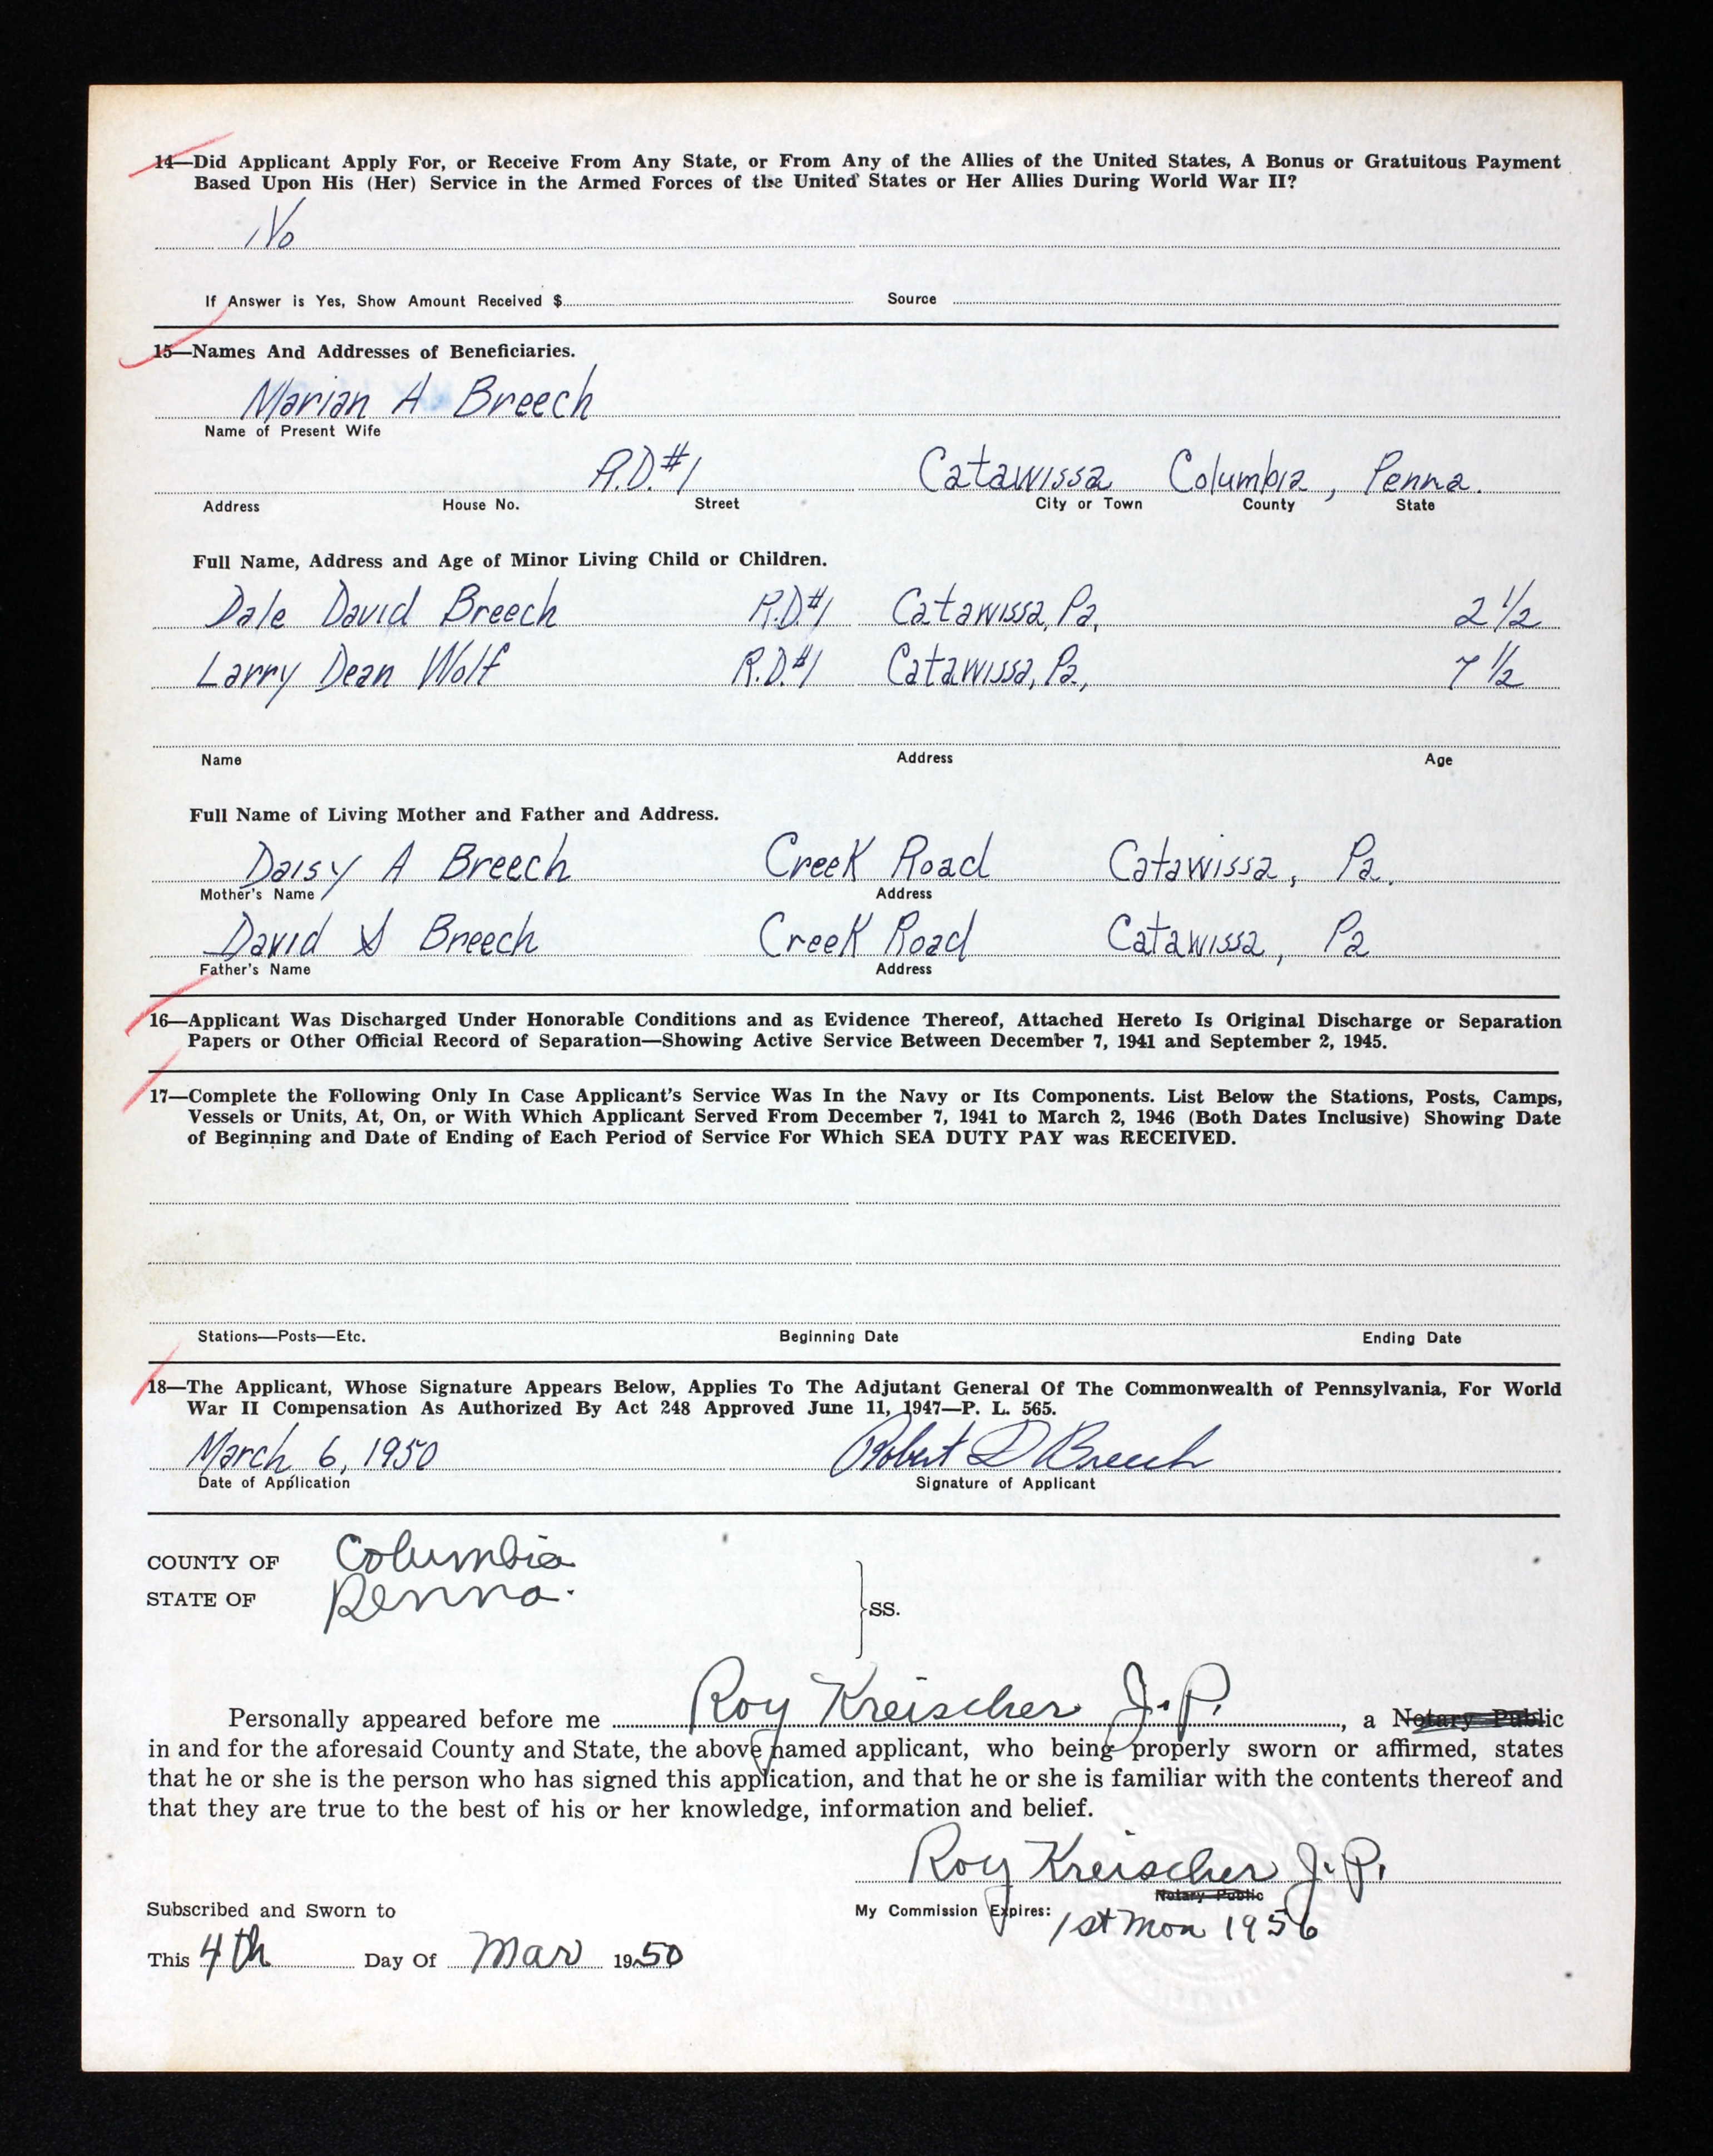 14—Did Applicant Apply For, or Receive From Any State, or From Any of the Allies of the United States, A Bonus or Gratuitous Payment
Based Upon His (Her) Service in the Armed Forces of the United States or Her Allies During World War II?
No
If Answer is Yes, Show Amount Received $ Source
15—Names And Addresses of Beneficiaries.
Marian A. Breech
Name of Present Wife
R.D.#1 Catawissa Columbia, Penna.
Address House No. Street City or Town County State
Full Name, Address and Age of Minor Living Child or Children.
Dale David Breech R.D.#1 Catawissa, Pa. 2 1/2
Larry Dean Wolf R.D.#1 Catawissa, Pa., 7 1/2
Name Address Age
Full Name of Living Mother and Father and Address.
Daisy A Breech Creek Road Catawissa, Pa.
Mother's Name Address
David S Breech Creek Road Catawissa, Pa
Father's Name Address
16—Applicant Was Discharged Under Honorable Conditions and as Evidence Thereof, Attached Hereto Is Original Discharge or Separation
Papers or Other Official Record of Separation—Showing Active Service Between December 7, 1941 and September 2, 1945.
17—Complete the Following Only In Case Applicant's Service Was In the Navy or Its Components. List Below the Stations, Posts, Camps,
Vessels or Units, At, On, or With Which Applicant Served From December 7, 1941 to March 2, 1946 (Both Dates Inclusive) Showing Date
of Beginning and Date of Ending of Each Period of Service For Which SEA DUTY PAY was RECEIVED.
Stations—Posts—Etc. Beginning Date Ending Date
18—The Applicant, Whose Signature Appears Below, Applies To The Adjutant General Of The Commonwealth of Pennsylvania, For World
War II Compensation As Authorized By Act 248 Approved June 11, 1947—P. L. 565.
March 6, 1950 Robert D Breech
Date of Application Signature of Applicant
COUNTY OF Columbia
STATE OF Penna.
SS.
Personally appeared before me Roy Kreischer J.P., a Notary Public
in and for the aforesaid County and State, the above named applicant, who being properly sworn or affirmed, states
that he or she is the person who has signed this application, and that he or she is familiar with the contents thereof and
that they are true to the best of his or her knowledge, information and belief.
Roy Kreischer J.P.
Notary Public
Subscribed and Sworn to My Commission Expires: 1st Mon 1956
This 4th Day Of Mar 1950